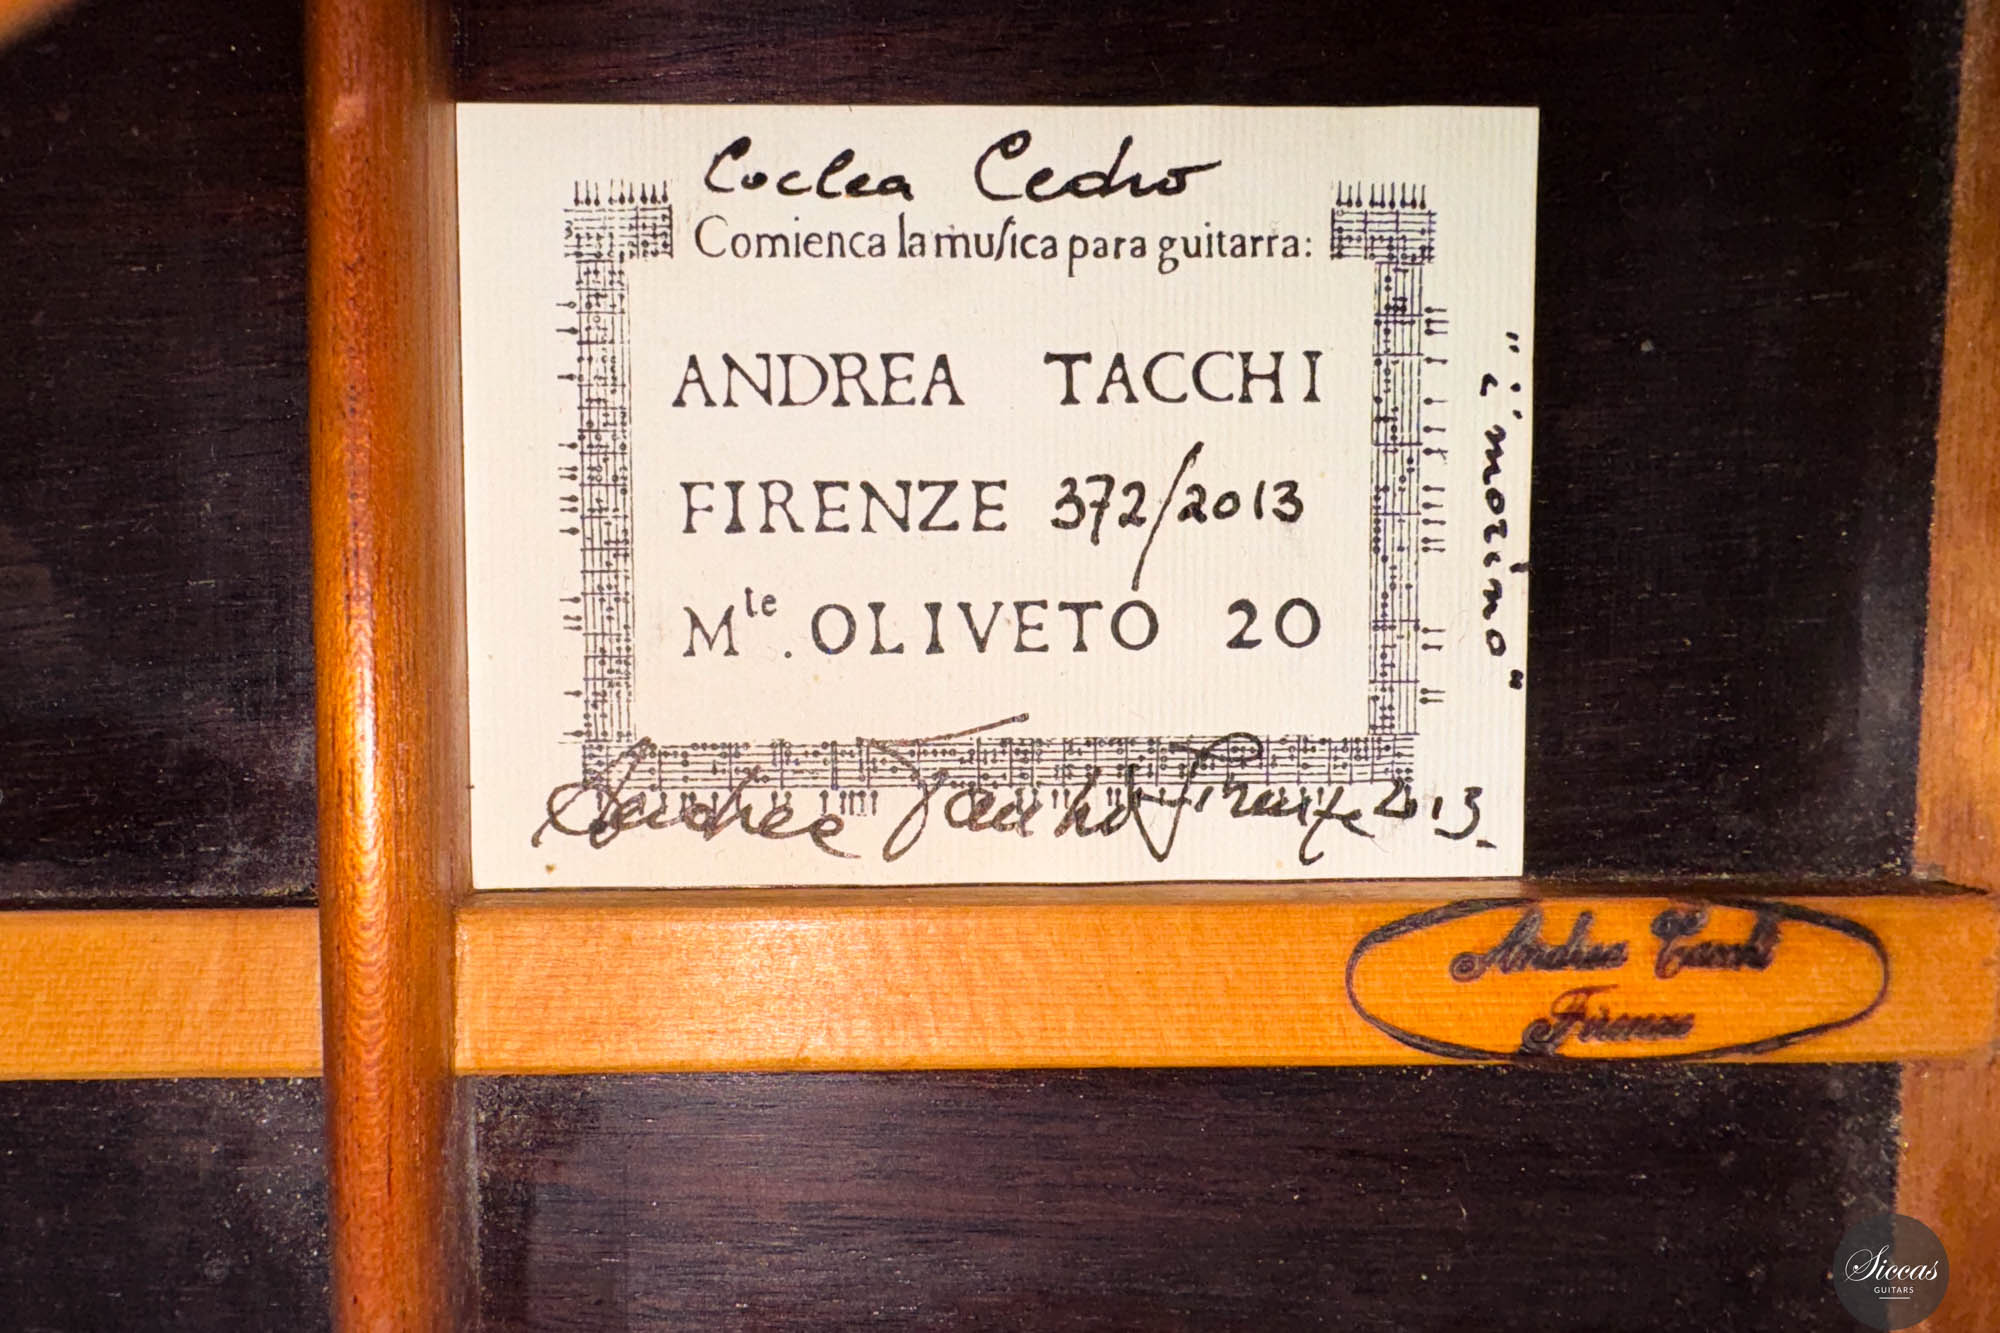 Coclea Cedro
Comienca la muſica para guitarra:
ANDREA TACCHI
FIRENZE 372/2013
Mte. OLIVETO 20
Andrea Tacchi Firenze 2013.
Andrea Tacchi
Firenze
Siccas
GUITARS